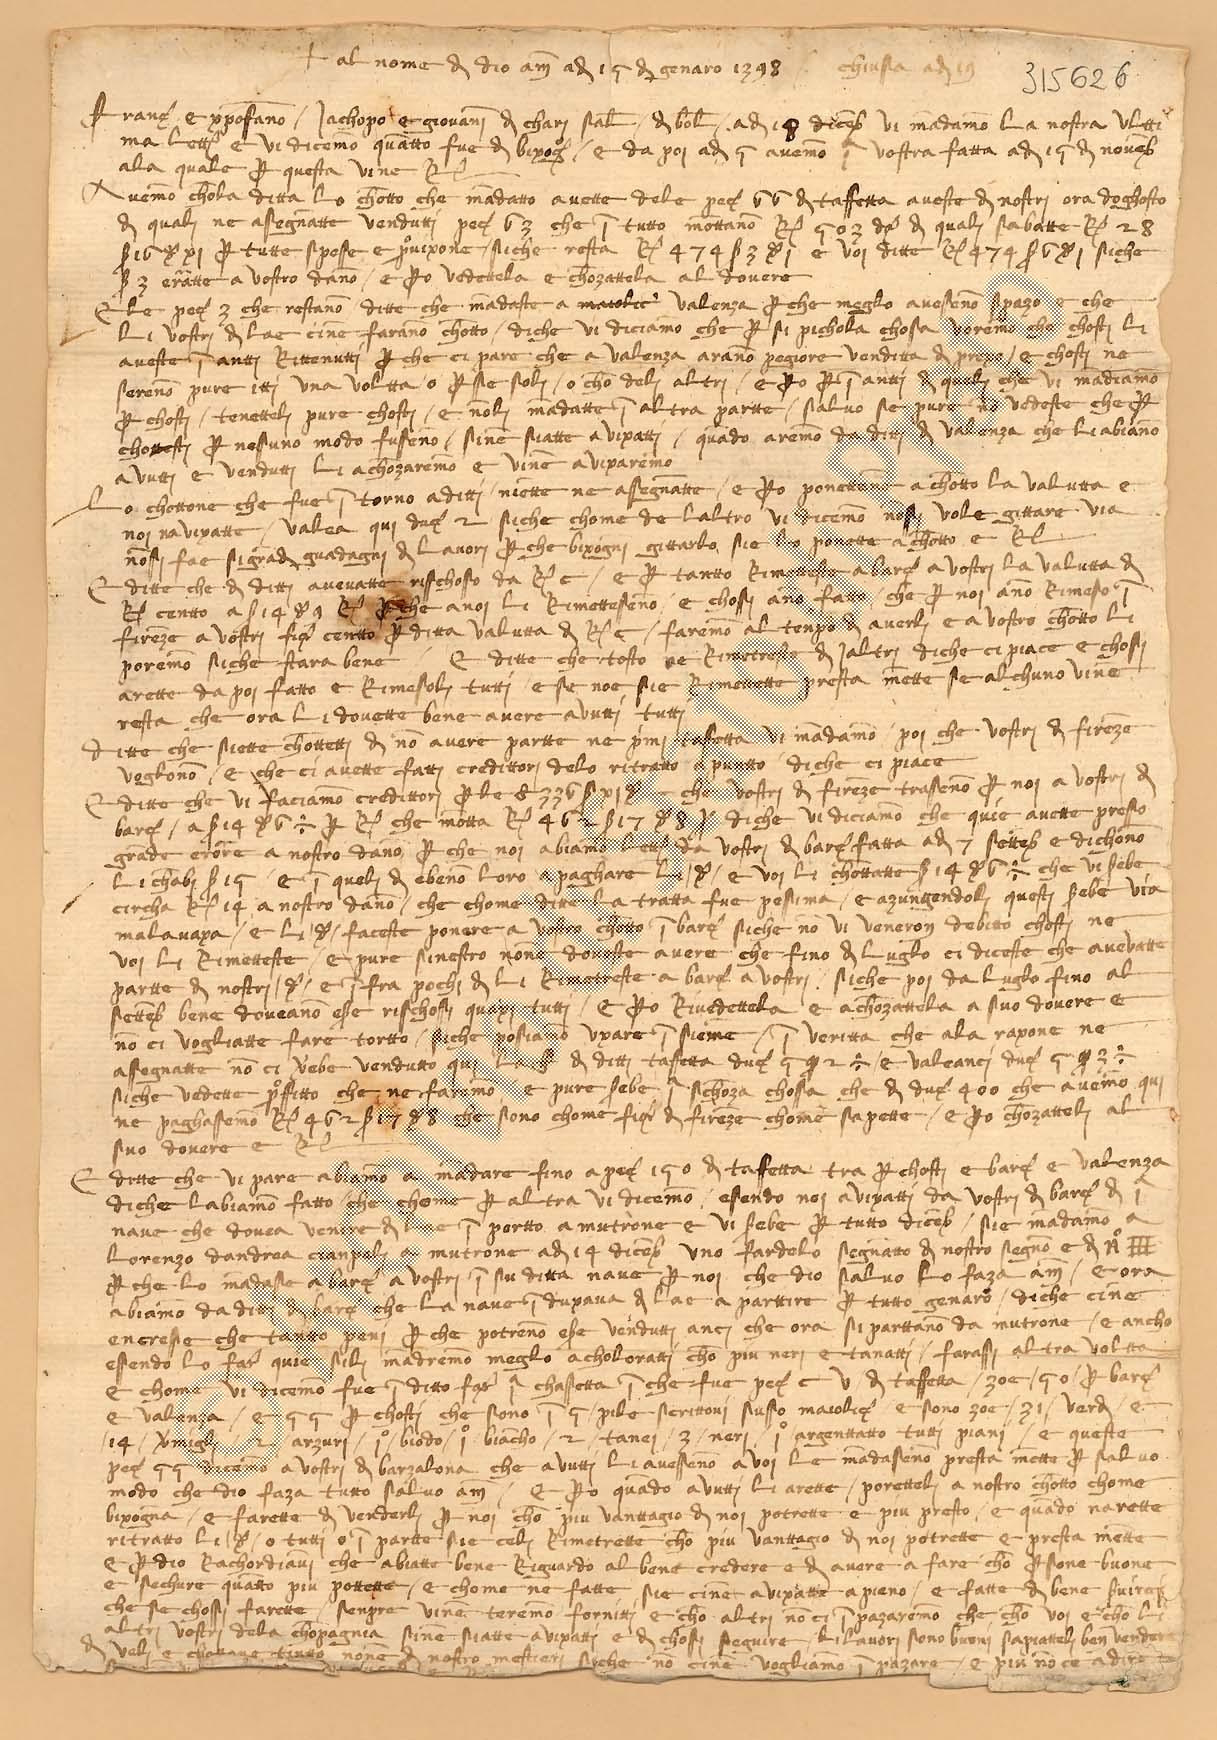 + al nome di dio am adi 15 di genaro 1398 chiusa adi 19
315626
Franc e xpofano Jachopo e giovani di charj sal di bol adi 18 diceb vi madamo la nostra ultti
ma lettr e vi dicemo quatto fue di bixog / e da poi adi 5 avemo j vostra fatta adi 15 di noveb
ala quale p questa vine R
Avemo chola ditta lo chotto che madatto avette dele peç 66 di taffetta aveste di nostri ora doghosto
di qualj ne assegnatte vendutti peç 63 che j tutto mottano R 503 di qualj sabatte R 28
ß 16 xj p tutte spese e provixone siche resta R 474 ß 3 j e voi ditte R 474 ß 6 j siche
ß 3 erratte a vostro dano / e po vedettela e chozattela al dovere
E le peç 3 che restano ditte che madaste a maiolic valenza p che meglo avesseno spazo e che
li vostri di lae cine farano chotto / diche vi diciamo che p si pichola chosa voremo che chosti li
aveste j antti rittenutti p che ci pare che a valenza arano pegiore venditta di prezo / e chosti ne
sereno pure itti una voltta o p se solj / o cho delj altri / e po p j antti di quelj che vi madiamo
p chosti / tenettelj pure chosti / e nolj madatte j altra partte / salvo se pure no vedeste che p
chottesti p nessuno modo fusseno / sine siatte avixatti / quado aremo da ditti di valenza che li abiano
avutti e vendutti li achozaremo e vine avixaremo
Lo chottone che fue j torno aditti niette ne assegnatte / e po ponettene a chotto la valutta e
noi navixatte / valea qui duc 2 siche chome de laltro vi dicemo nosi vole gittare via
nosi fae si gradi guadagnj di lavorj p che bixognj gittarlo sie lo ponette a chotto e R
E ditte che di ditti avevatte rischosso da R c / e p tantto rimetteste a barç a vostri la valutta di
R centto a ß 14 9 R p che a noi li rimettesseno / e chosi ano fatto / che p noi ano rimesso j
fireze a vostri fior centto p ditta valutta di R c / faremo al tenpo di averli e a vostro chotto li
poremo siche stara bene E ditte che tosto ne rimetreste di jaltri diche ci piace e chosi
arette da poi fatto e rimesolj tutti / e se noe sie rimettette presta mette se alchuno vine
resta che ora li dovette bene avere avutti tutti
ditte che siette chottetti di no avere partte ne pmi taffetta vi madamo / poi che vostri di fireze
voglono / e che ci avette fatti credittori delo ritratto a puntto diche ci piace
E ditte che vi faciamo credittori p le 336 ß xj che vostri di fireze trasseno p noi a vostri di
barç / a ß 14 6 ÷ p R che motta R 462 ß 17 8 p diche vi diciamo che quie avette presso
grade erore a nostro dano p che noi abiamo lettr da vostri di barç fatta adi 7 setteb e dichono
li chabj ß 15 / e j quelj di ebeno loro a paghare li / e voi li chottatte ß 14 6 ÷ che vi sebe
circha R 14 a nostro dano / che chome ditte la tratta fue pessima / e azungendolj questi sebe via
malavaxa / e li faceste ponere a vostro chotto j barç siche no vi veneron debitto chosti ne
voi li rimetteste / e pure sinestro none doveste avere che fino di luglo ci diceste che avevatte
partte di nostri / e j fra pochi di li rimetreste a barç a vostri / siche poi da luglo fino al
setteb bene doveano ese rischossi quaxi tutti / e po rivedettela e achozattela a suo dovere e
no ci vogliatte fare tortto / siche posiamo uxare j sieme / j veritta che ala raxone ne
assegnatte no ci vebe vendutto qui la di ditti taffetta duc 5 2 ÷ / e valeanci duc 5 3 ÷
siche vedette profitto che ne faremo e pure sebe j schoza chossa che di duc 400 che avemo qui
ne paghassemo R 462 ß 17 8 che sono chome fior di fireze chome sapette / e po chozattelj al
suo dovere e R
E ditte che vi pare abiamo a madare fino a peç 150 di taffetta tra p chosti e barç e valenza
diche labiamo fatto / che chome p altra vi dicemo / esendo noi avixatti da vostri di barç di j
nave che dovea venire di lae j portto a mutrone e vi sebe p tutto diceb / sie madamo a
Lorenzo dandrea cianpelj a mutrone adi 14 diceb uno fardelo segnatto di nostro segno e di
p che lo madasse a barç a vostri j su ditta nave p noi che dio salvo lo faza am / e ora
abiamo da ditti di barç che la nave j duxava di lae a parttire p tutto genaro / diche cine
encresse che tantto penj p che potreno ese vendutti anci che ora si parttano da mutrone / e ancho
essendo lo far quie silj madremo meglo acholoratti cho piu neri e tanatti / farassi altra voltta
e chome vi dicemo fue j ditto far j chassetta j che fue peç c v di taffetta / zoe / 50 / p barç
e valenza / e 55 p chosti che sono j 5 / pile scrittovi susso maiolic / e sono zoe / 31 / verdi / e
/ 14 / vermiglj / 2 / arzurj / jo / biodo / jo biancho / 2 / tanei / 3 / neri / jo argenttatto tutti piani / e queste
peç 55 dicemo a vostri di barzalona che avutti li avesseno a voi le madasseno presta mette p salvo
modo che dio faza tutto salvo am / e po quado avutti li arette / porettelj a nostro chotto chome
bixogna / e farette di venderlj p noi cho piu vanttagio di noi potrette e piu presto / e quado narette
ritratto li / o tutti o j partte sie celj rimetrette cho piu vanttagio di noi potrette e presta mette
e p dio rachordiavi che abiatte bene riguardo al bene credere e di avere a fare cho psone buone
e sechure quatto piu pottette / e chome ne fatte sie cine avixatte a pieno / e fatte di bene
che se chosi farette / senpre vine teremo fornitti e cho altri no ci j pazaremo che cho voi e cho li
altri vostri dela chopagnia sine siatte avixatti e di chosi seguire / li lavori sono buoni sapiattelj ben vendere
di velj e chottone tintto none di nostro mestieri siche no cine vogliamo j pazare / e piu no ce a dire